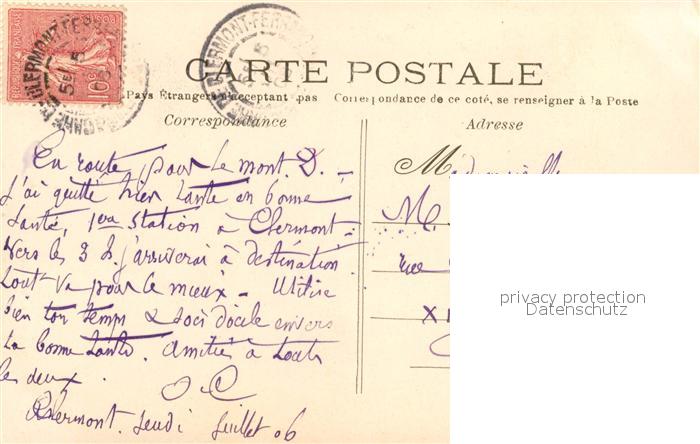 CLERMONT-FERRAND
10c
CARTE POSTALE
Pays Étrangers n'acceptant pas Correspondance de ce coté, se renseigner à la Poste
Correspondance
Adresse
En route pour le mont. D. —
j'ai quitté hier tante en bonne
santé, 1ère Station à Clermont —
Vers les 3 h. j'arriverai à destination
tout va pour le mieux — Utilise
bien ton temps & sois docile envers
ta bonne tante. Amitié à toutes
les deux.
Clermont. Jeudi Juillet 06
M
rue
privacy protection
Datenschutz